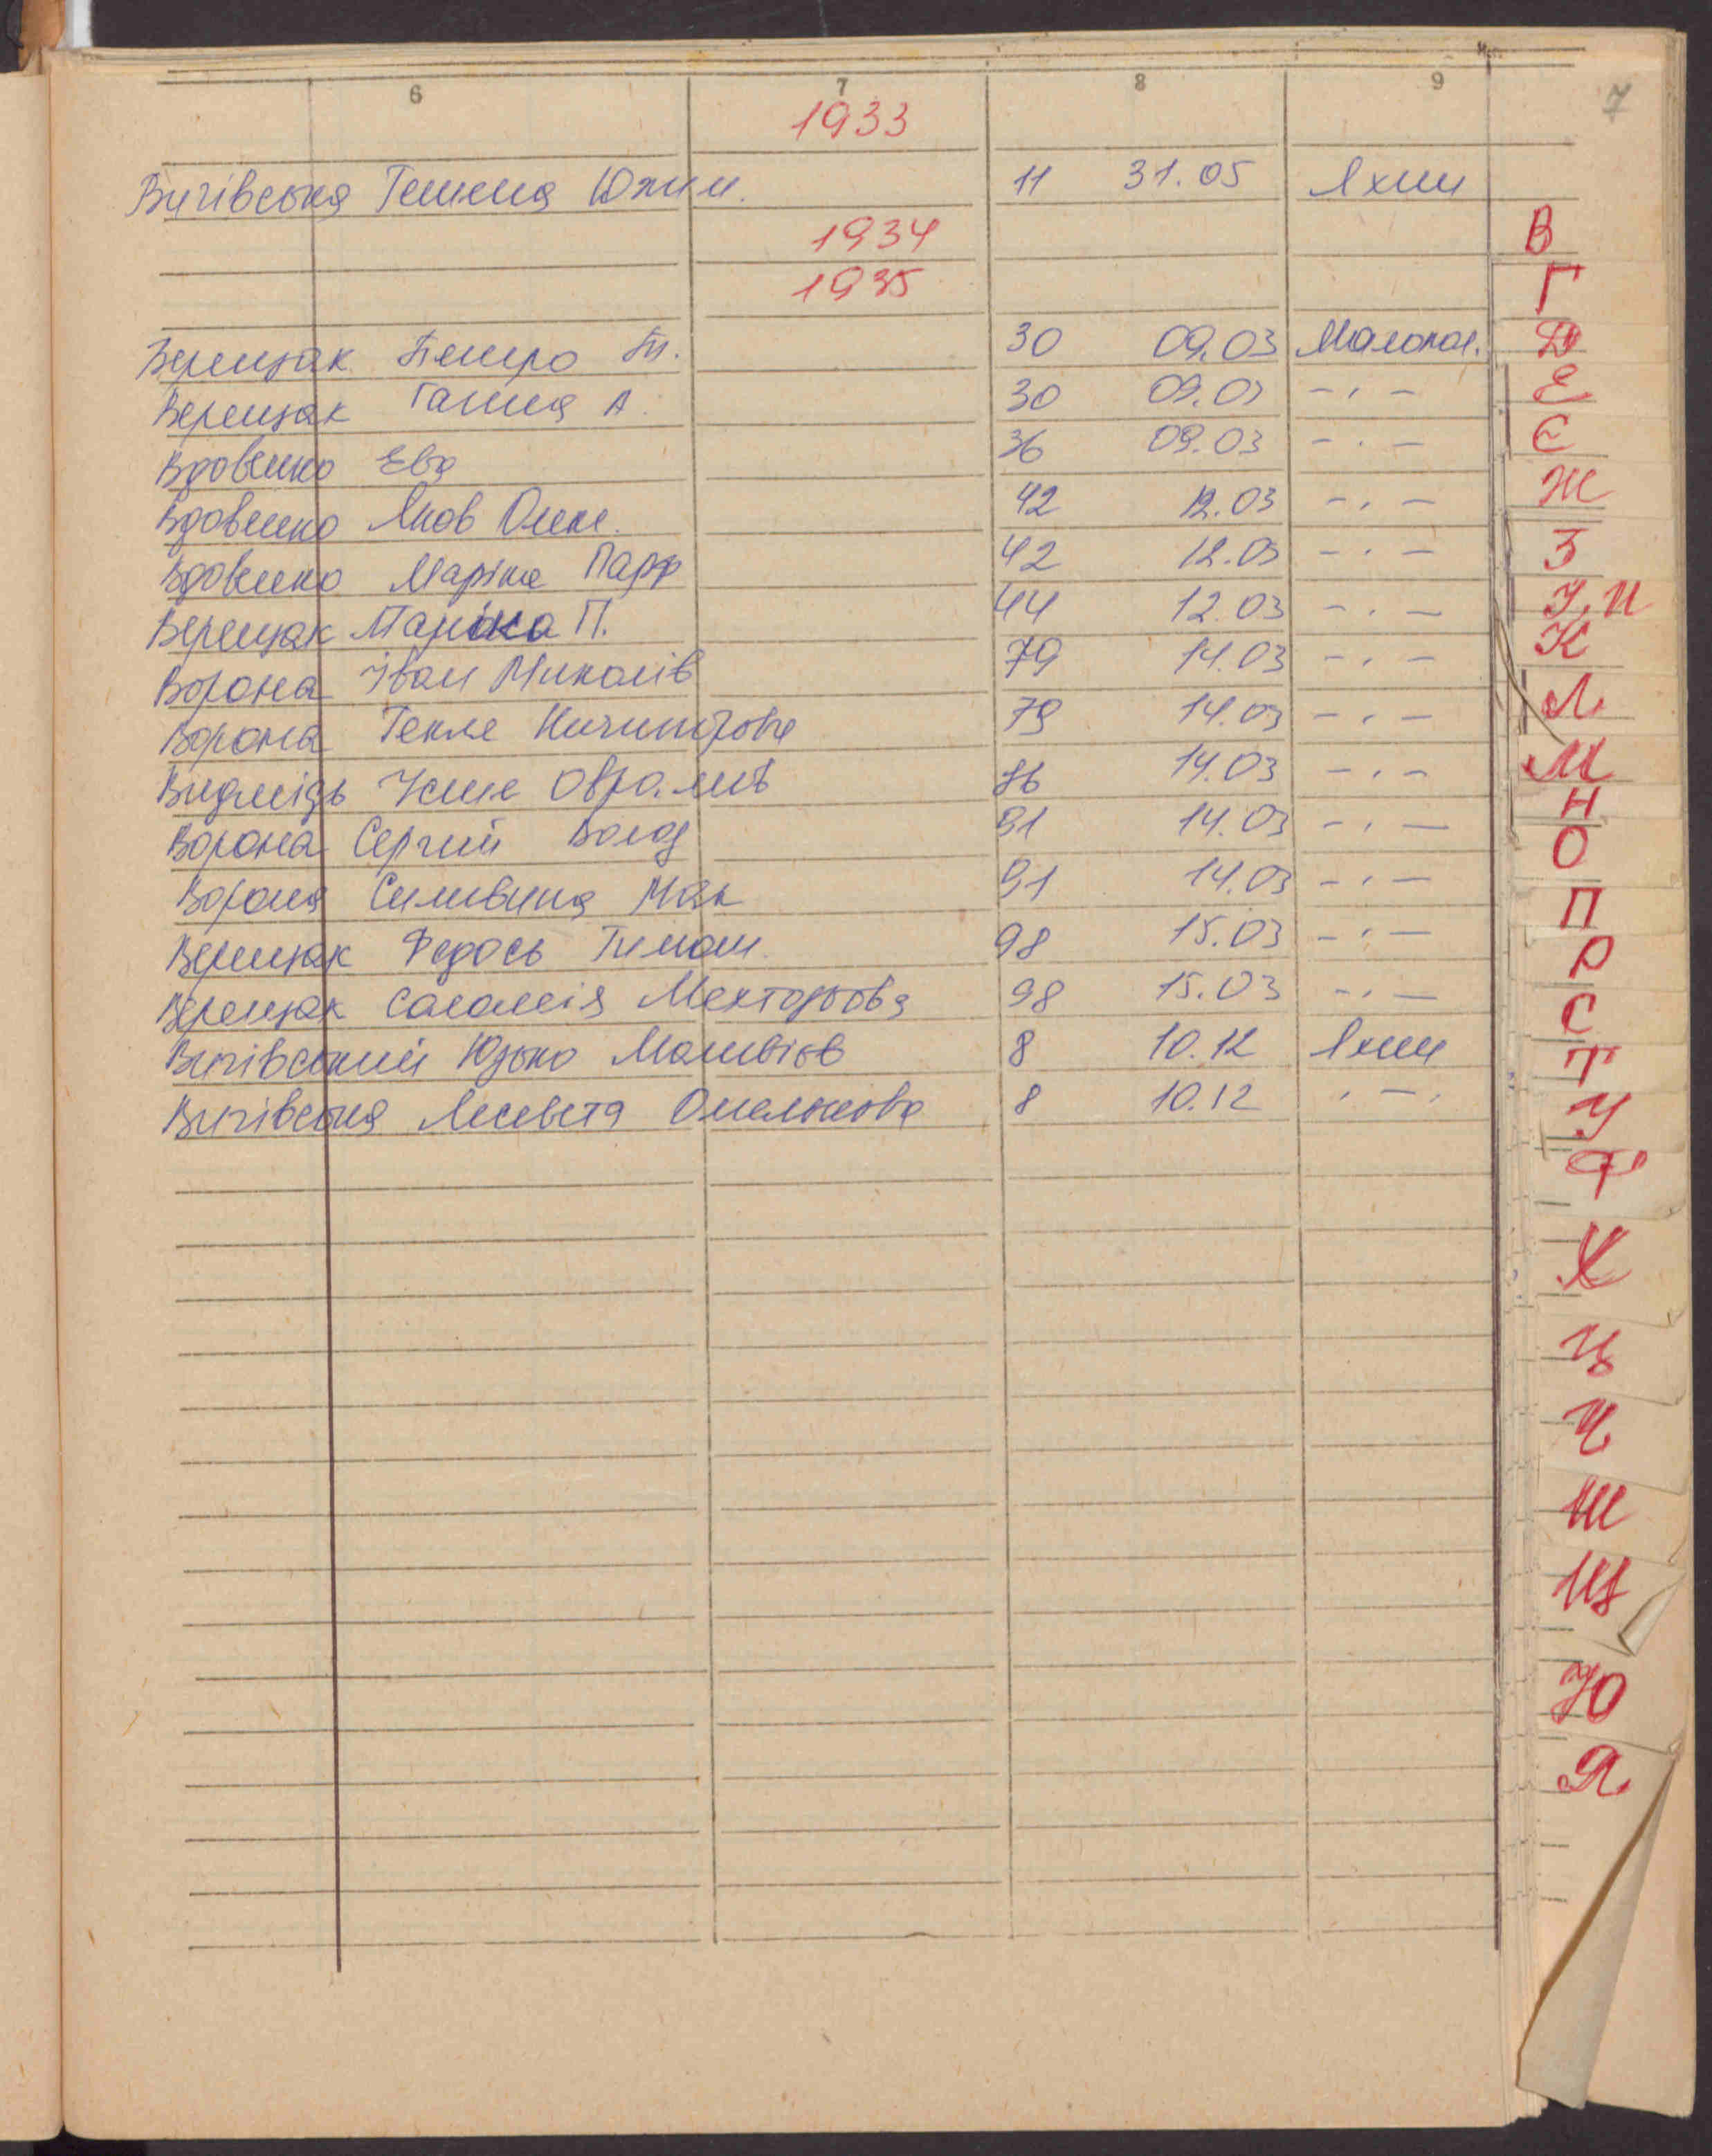 6 7 8 9
7
1933
Вигівська Гешена Южим. 11 31.05 Яхни
1934
1935
Верещак Петро Т. 30 09.03 Малопол.
Верещак Ганна А. 30 09.03 - , -
Вдовенко Ева 36 09.03 - . -
Вдовенко Яков Олекс. 42 12.03 - , -
Вдовенко Маріна Парф 42 12.03 - . -
Верещак Маріка П. 44 12.03 - . -
Ворона Іван Миколів 79 14.03 - , -
Ворона Текле Ничипорова 79 14.03 - , -
Видмідь Оврамів 86 14.03 - , -
Ворона Сергий Волод 91 14.03 - , -
Ворона Силивина Мак 91 14.03 - , -
Верещак Федось Тимош. 98 15.03 - , -
Верещак Саламія Мехтодьова 98 15.03 - , -
Вигівський Юзько Матвіїв 8 10.12 Яхни
Вигівська Лисавета Омелькова 8 10.12 , - ,
В
Г
Д
Е
Є
Ж
З
І, И
К
Л
М
Н
О
П
Р
С
Т
У
Ф
Х
Ц
Ч
Ш
Щ
Ю
Я